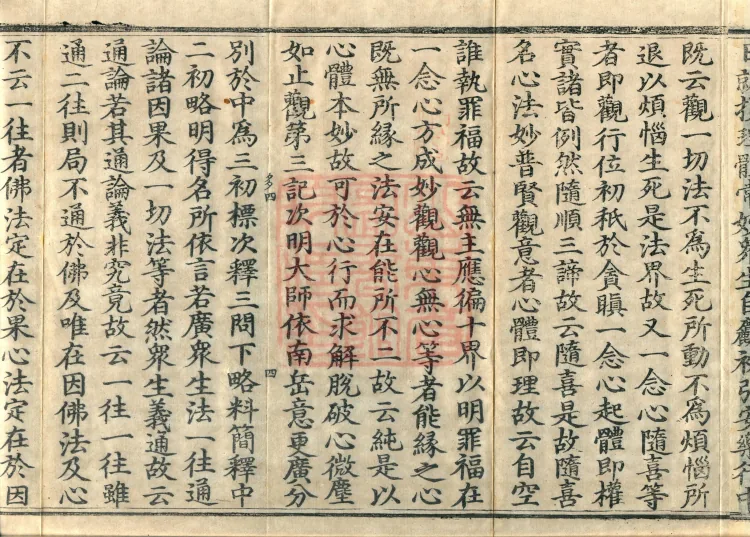 既云觀一切法不為生死所動不為煩惱所
退以煩惱生死是法界故又一念心隨喜等
者即觀行位初秖於貪瞋一念心起體即權
實諸皆例然隨順三諦故云隨喜是故隨喜
名心法妙普賢觀意者心體即理故云自空
誰執罪福故云無主應徧十界以明罪福在
一念心方成妙觀觀心無心等者能緣之心
既無所緣之法安在能所不二故云純是以
心體本妙故可於心行而求解脫破心微塵
如止觀第三記次明大師依南岳意更廣分
別於中為三初標次釋三問下略料簡釋中
二初略明得名所依言若廣眾生法一往通
論諸因果及一切法等者然眾生義通故云
通論若其通論義非究竟故云一往一往雖
通二往則局不通於佛及唯在因佛法及心
不云一往者佛法定在於果心法定在於因
四